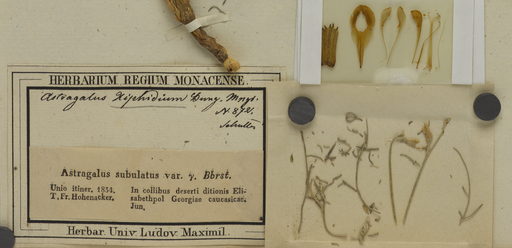 HERBARIUM REGIUM MONACENSE.
Astragalus Xiphidium Bung. Mogr.
N. 872.
Astragalus subulatus var. γ. Bbrst.
Unio itiner. 1834.
T. Fr. Hohenacker.
In collibus deserti ditionis Eli-
sabethpol Georgiae caucasicae.
Jun.
Herbar. Univ. Ludov. Maximil.